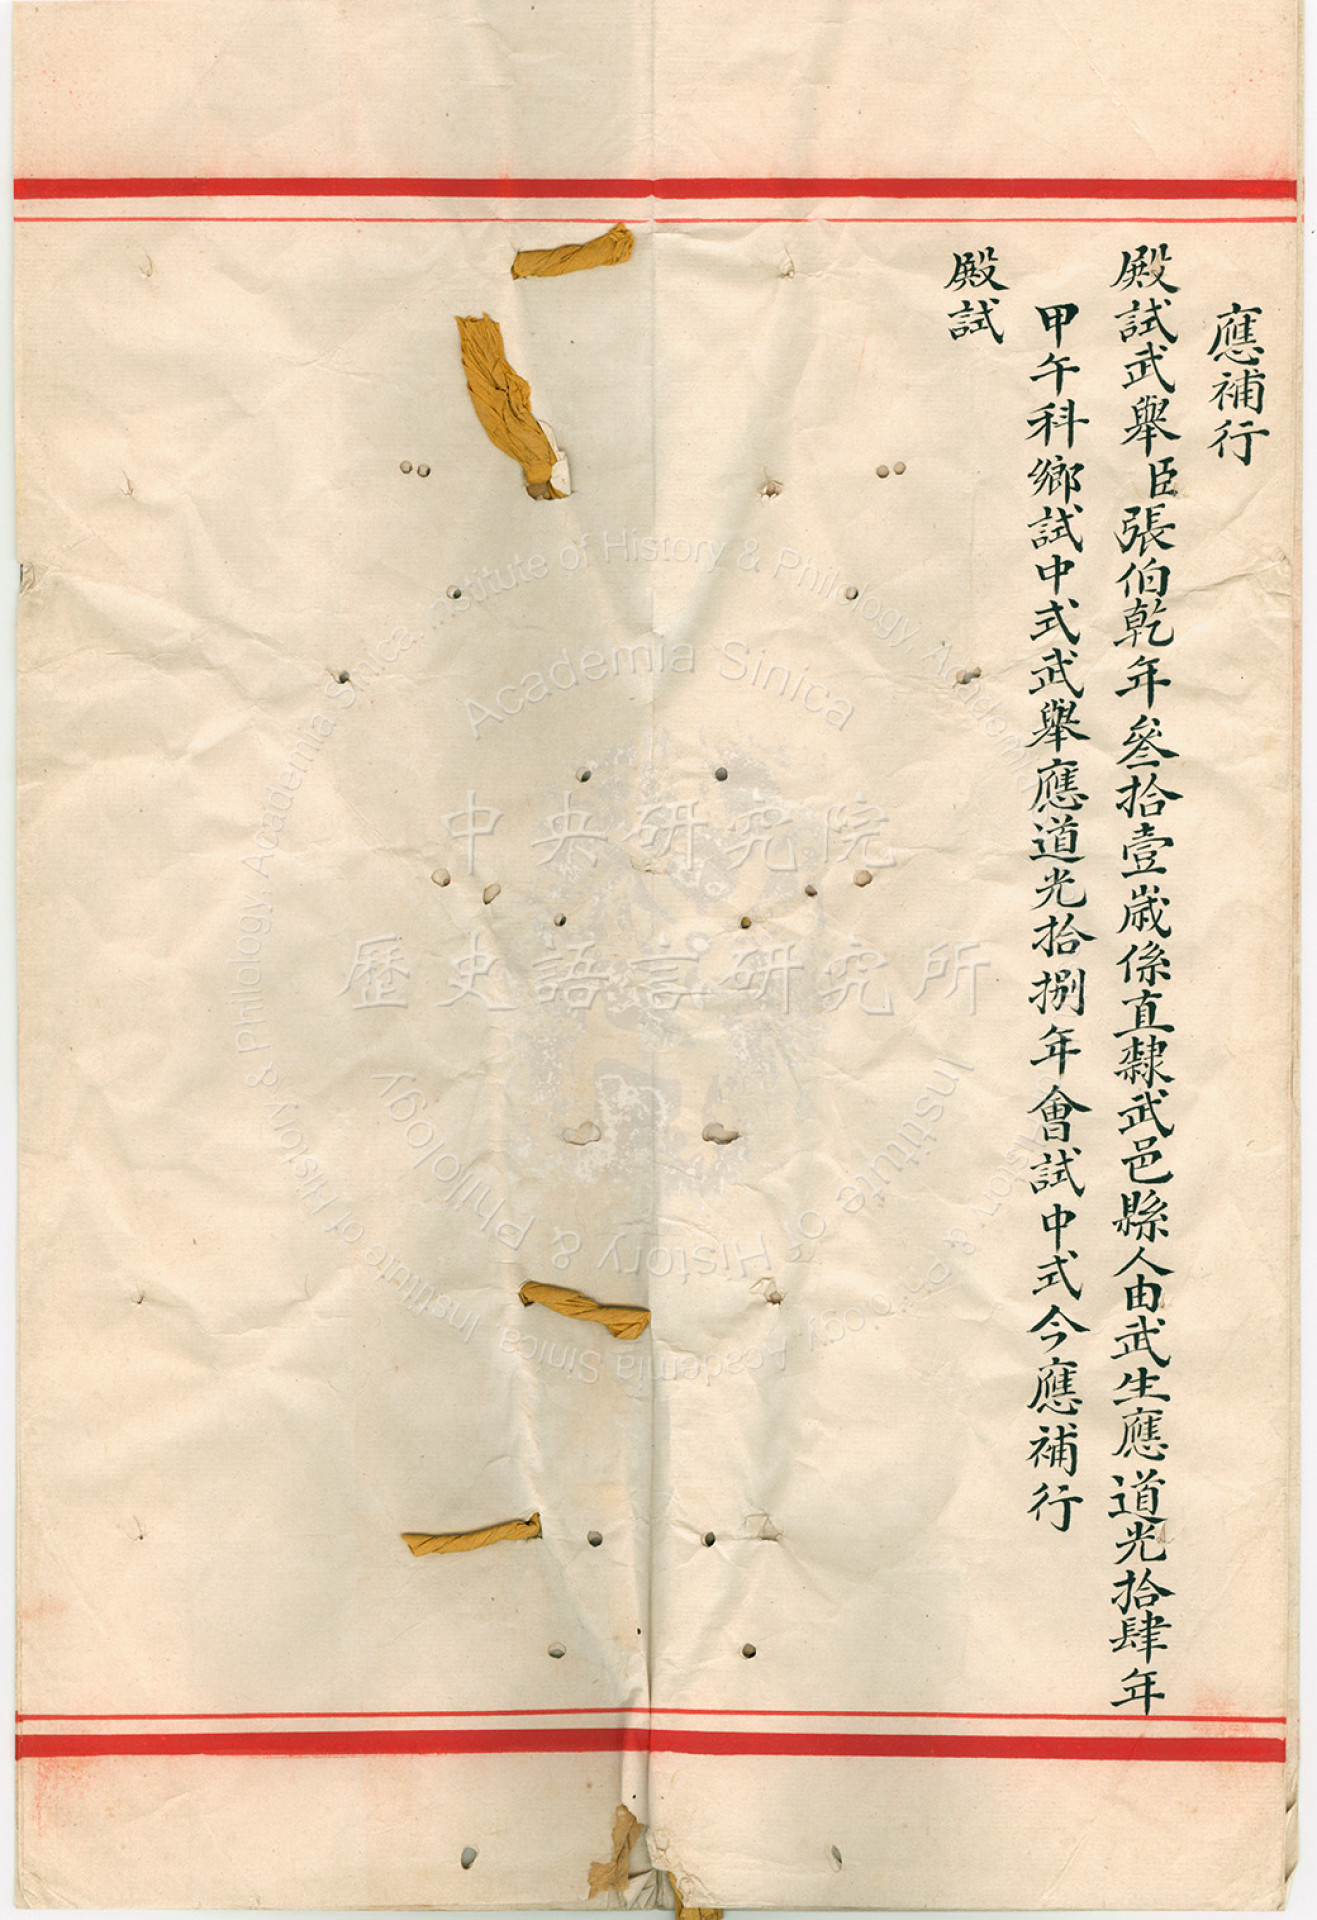 應補行
殿試武舉臣張伯乾年叄拾壹歲係直隸武邑縣人由武生應道光拾肆年
甲午科鄉試中式武舉應道光拾捌年會試中式今應補行
殿試
Academia Sinica
Institute of History & Philology, Academia Sinica
中央研究院
歷史語言研究所
Institute of History & Philology